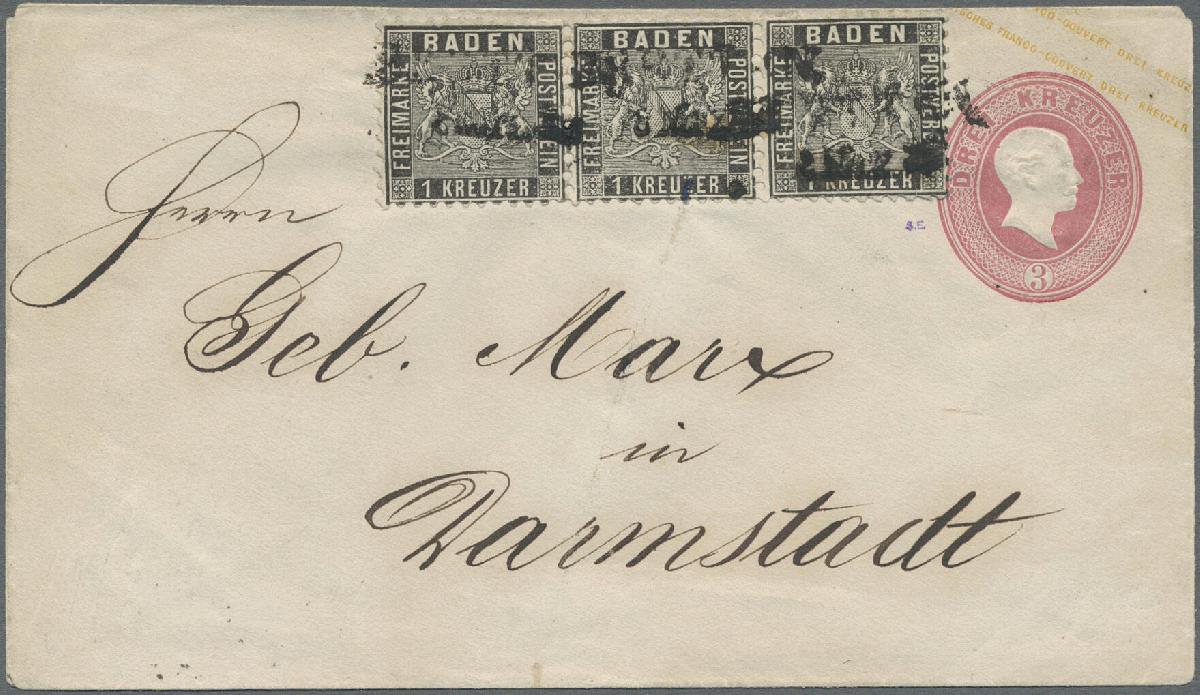 BADEN
FREIMARKE
POSTVEREIN
1 KREUZER
BADEN
FREIMARKE
POSTVEREIN
1 KREUZER
BADEN
FREIMARKE
POSTVEREIN
1 KREUZER
FRANCO-COUVERT DREI KREUZER
DREI KREUZER
3
S.E
Herrn
Geb. Marx
in
Darmstadt